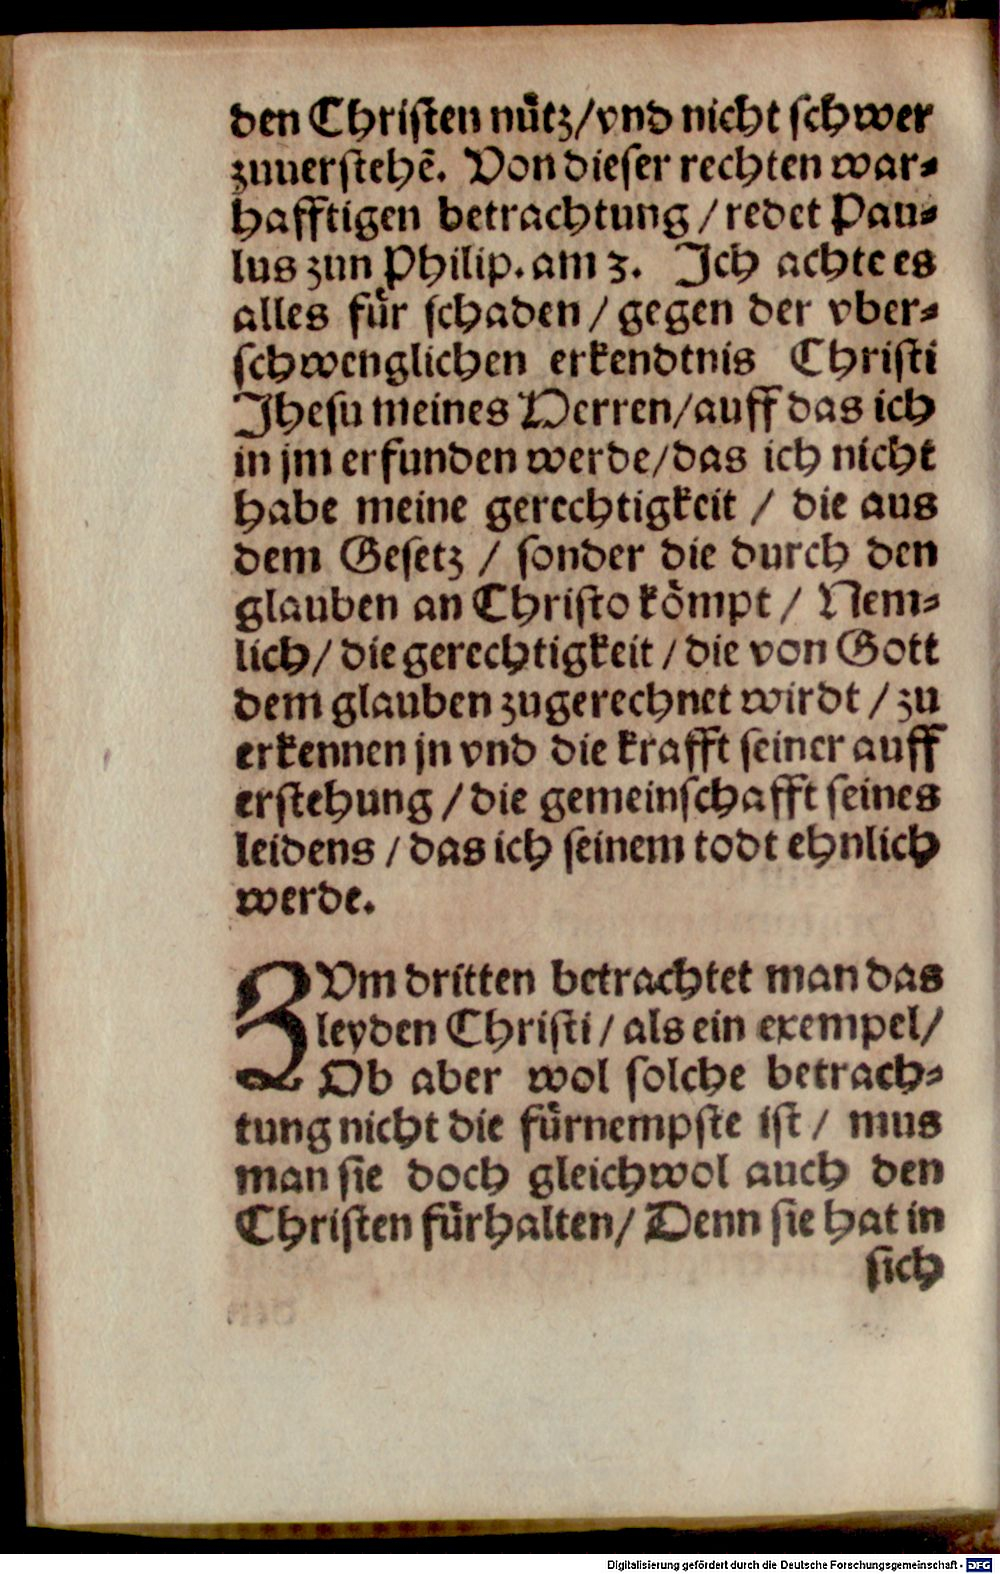 den Chriſten nuͤtz/vnd nicht ſchwer
zuuerſtehẽ. Von dieſer rechten war⸗
hafftigen betrachtung / redet Pau⸗
lus zun Philip. am 3. Ich achte es
alles fuͤr ſchaden / gegen der vber⸗
ſchwenglichen erkendtnis Chriſti
Jheſu meines Herren/auff das ich
in jm erfunden werde/das ich nicht
habe meine gerechtigkeit / die aus
dem Geſetz / ſonder die durch den
glauben an Chriſto koͤmpt / Nem⸗
lich/ die gerechtigkeit / die von Gott
dem glauben zugerechnet wirdt / zu
erkennen jn vnd die krafft ſeiner auff
erſtehung / die gemeinſchafft ſeines
leidens / das ich ſeinem todt ehnlich
werde.
ZVm dritten betrachtet man das
leyden Chriſti / als ein exempel/
Ob aber wol ſolche betrach⸗
tung nicht die fuͤrnempſte iſt / mus
man ſie doch gleichwol auch den
Chriſten fuͤrhalten/ Denn ſie hat in
ſich
Digitalisierung gefördert durch die Deutsche Forschungsgemeinschaft - DFG